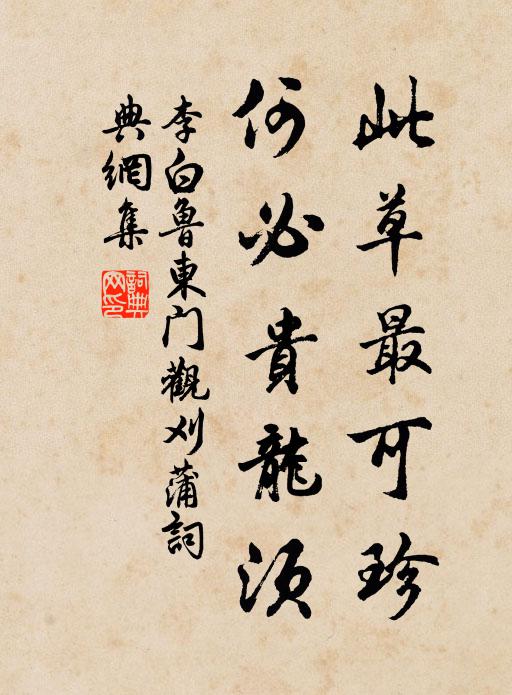 此草最可珍
何必貴龍須
李白魯東门觀刈蒲詞
典網集
詞典
网印